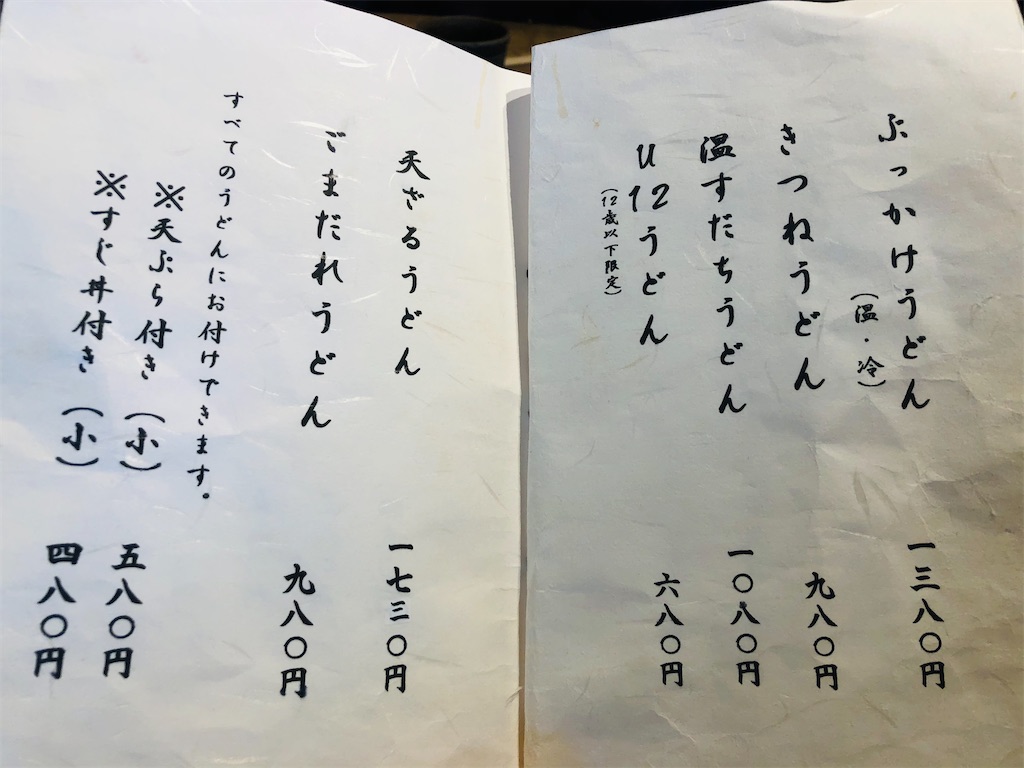 ぶっかけうどん
(温・冷)
一三八〇円
きつねうどん
九八〇円
温すだちうどん
一〇八〇円
U12うどん
(12歳以下限定)
六八〇円
天ざるうどん
一七三〇円
ごまだれうどん
九八〇円
すべてのうどんにお付けできます。
※天ぷら付き(小)
五八〇円
※すじ丼付き(小)
四八〇円